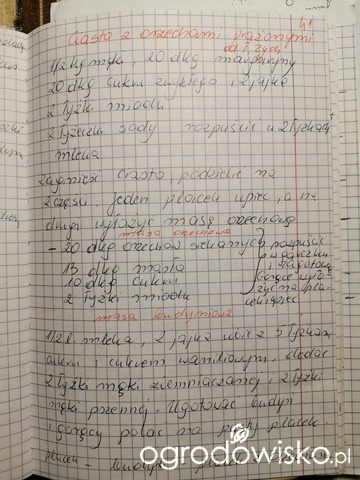 41
Ciasto z orzechami prażonymi
od T. Zych
1/2 kg mąki, 20 dkg margaryny
20 dkg cukru zwykłego, 2 jajka
2 łyżki miodu
2 łyżeczki sody rozpuścić w 2 łyżkach
mleka
zagnieść ciasto, podzielić na
2 części. jeden placek upiec, a na
drugi wyłożyć masę orzechową
masa orzechowa
- 20 dkg orzechów siekanych
13 dkg masła
10 dkg cukru
2 łyżki miodu
rozpuścić
w garnuszku
i zagotować
gorące wyło-
żyć na pla-
cek i upiec
masa budyniowa
1/2 l. mleka, 2 jajka ubić z 5 łyżkami
cukru i cukrem waniliowym. dodać
2 łyżki mąki ziemniaczanej, 2 łyżki
mąki pszennej. Ugotować budyń
i gorący polać na pusty placek.
placek - budyń - placek
ogrodowisko.pl